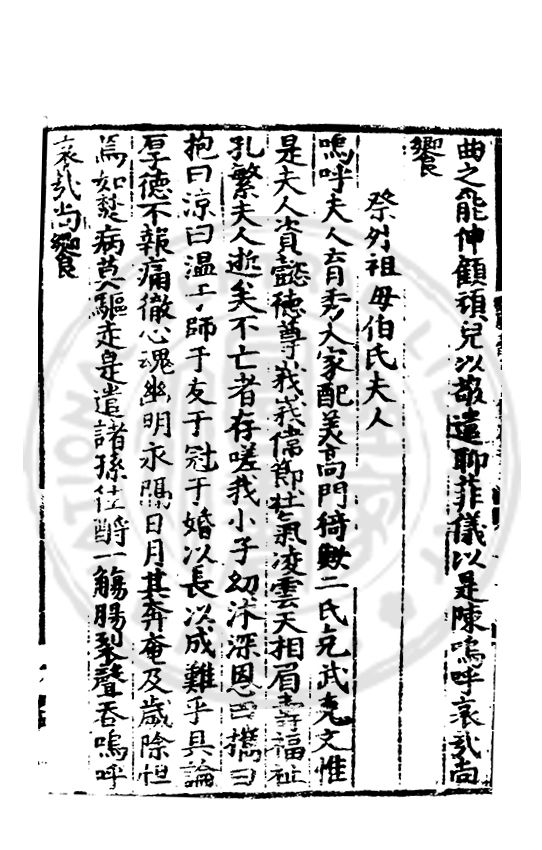 曲之能伸顧頑兒以故遠聊菲儀以是陳嗚呼哀哉尚
饗
祭外祖母伯氏夫人
嗚呼夫人育秀大家配美高門猗歟二氏允武克文惟
是夫人資懿德尊峩峩儒節壯氣凌雲天相眉壽福祉
孔繁夫人逝矣不亡者存嗟我小子幼沐深恩曰攜曰
抱曰涼曰温于師于友于冠于婚以長以成難乎具論
厚德不報痛徹心魂幽明永隔日月其奔奄及歲除怛
焉如焚病莫驅走是遣諸孫侄酹一觴腸裂聲吞嗚呼
哀哉尚饗